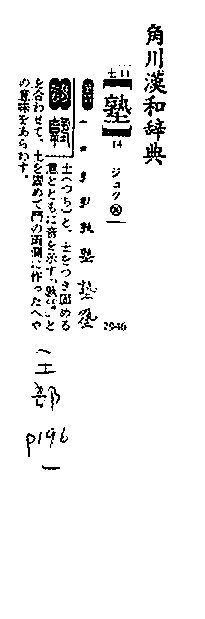 角川漢和辞典
土11
【塾】
14
ジュク
2946
土(つち)と、土をつき固める
意とともに音を示す
と
を合わせて、土を固めて門の両側に作ったへや
の意味をあらわす。
(土部
p196